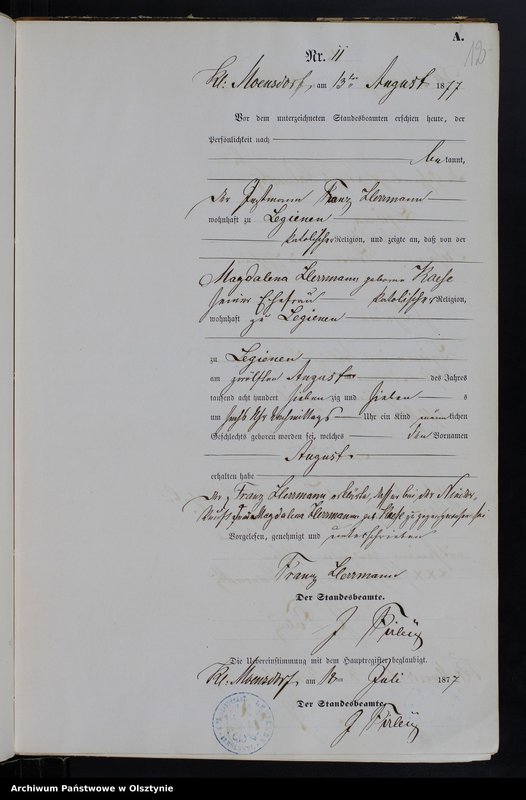 A.
13
Nr. 11
Kl: Moensdorf, am 13ten August 1877
Vor dem unterzeichneten Standesbeamten erschien heute, der
Persönlichkeit nach
bekannt,
der Franz Herrmann
wohnhaft zu Legienen
katolischer Religion, und zeigte an, daß von der
Magdalena Herrmann geborene Kaese
seiner Ehefrau katolischer Religion,
wohnhaft zu Legienen
zu Legienen
am zwölften August des Jahres
tausend acht hundert sieben zig und sieben
um sechs Uhr Nachmittags Uhr ein Kind männlichen
Geschlechts geboren worden sei, welches den Vornamen
August
erhalten habe
Der, Franz Herrmann erklärte, daß er bei der Nieder-
kunft der Magdalena Herrmann geb Kaese zugegen gewesen sei
Vorgelesen, genehmigt und unterschrieben
Franz Herrmann
Der Standesbeamte.
Die Uebereinstimmung mit dem Hauptregister beglaubigt.
Kl: Moensdorf, am Juli 1877
Der Standesbeamte
Archiwum Państwowe w Olsztynie